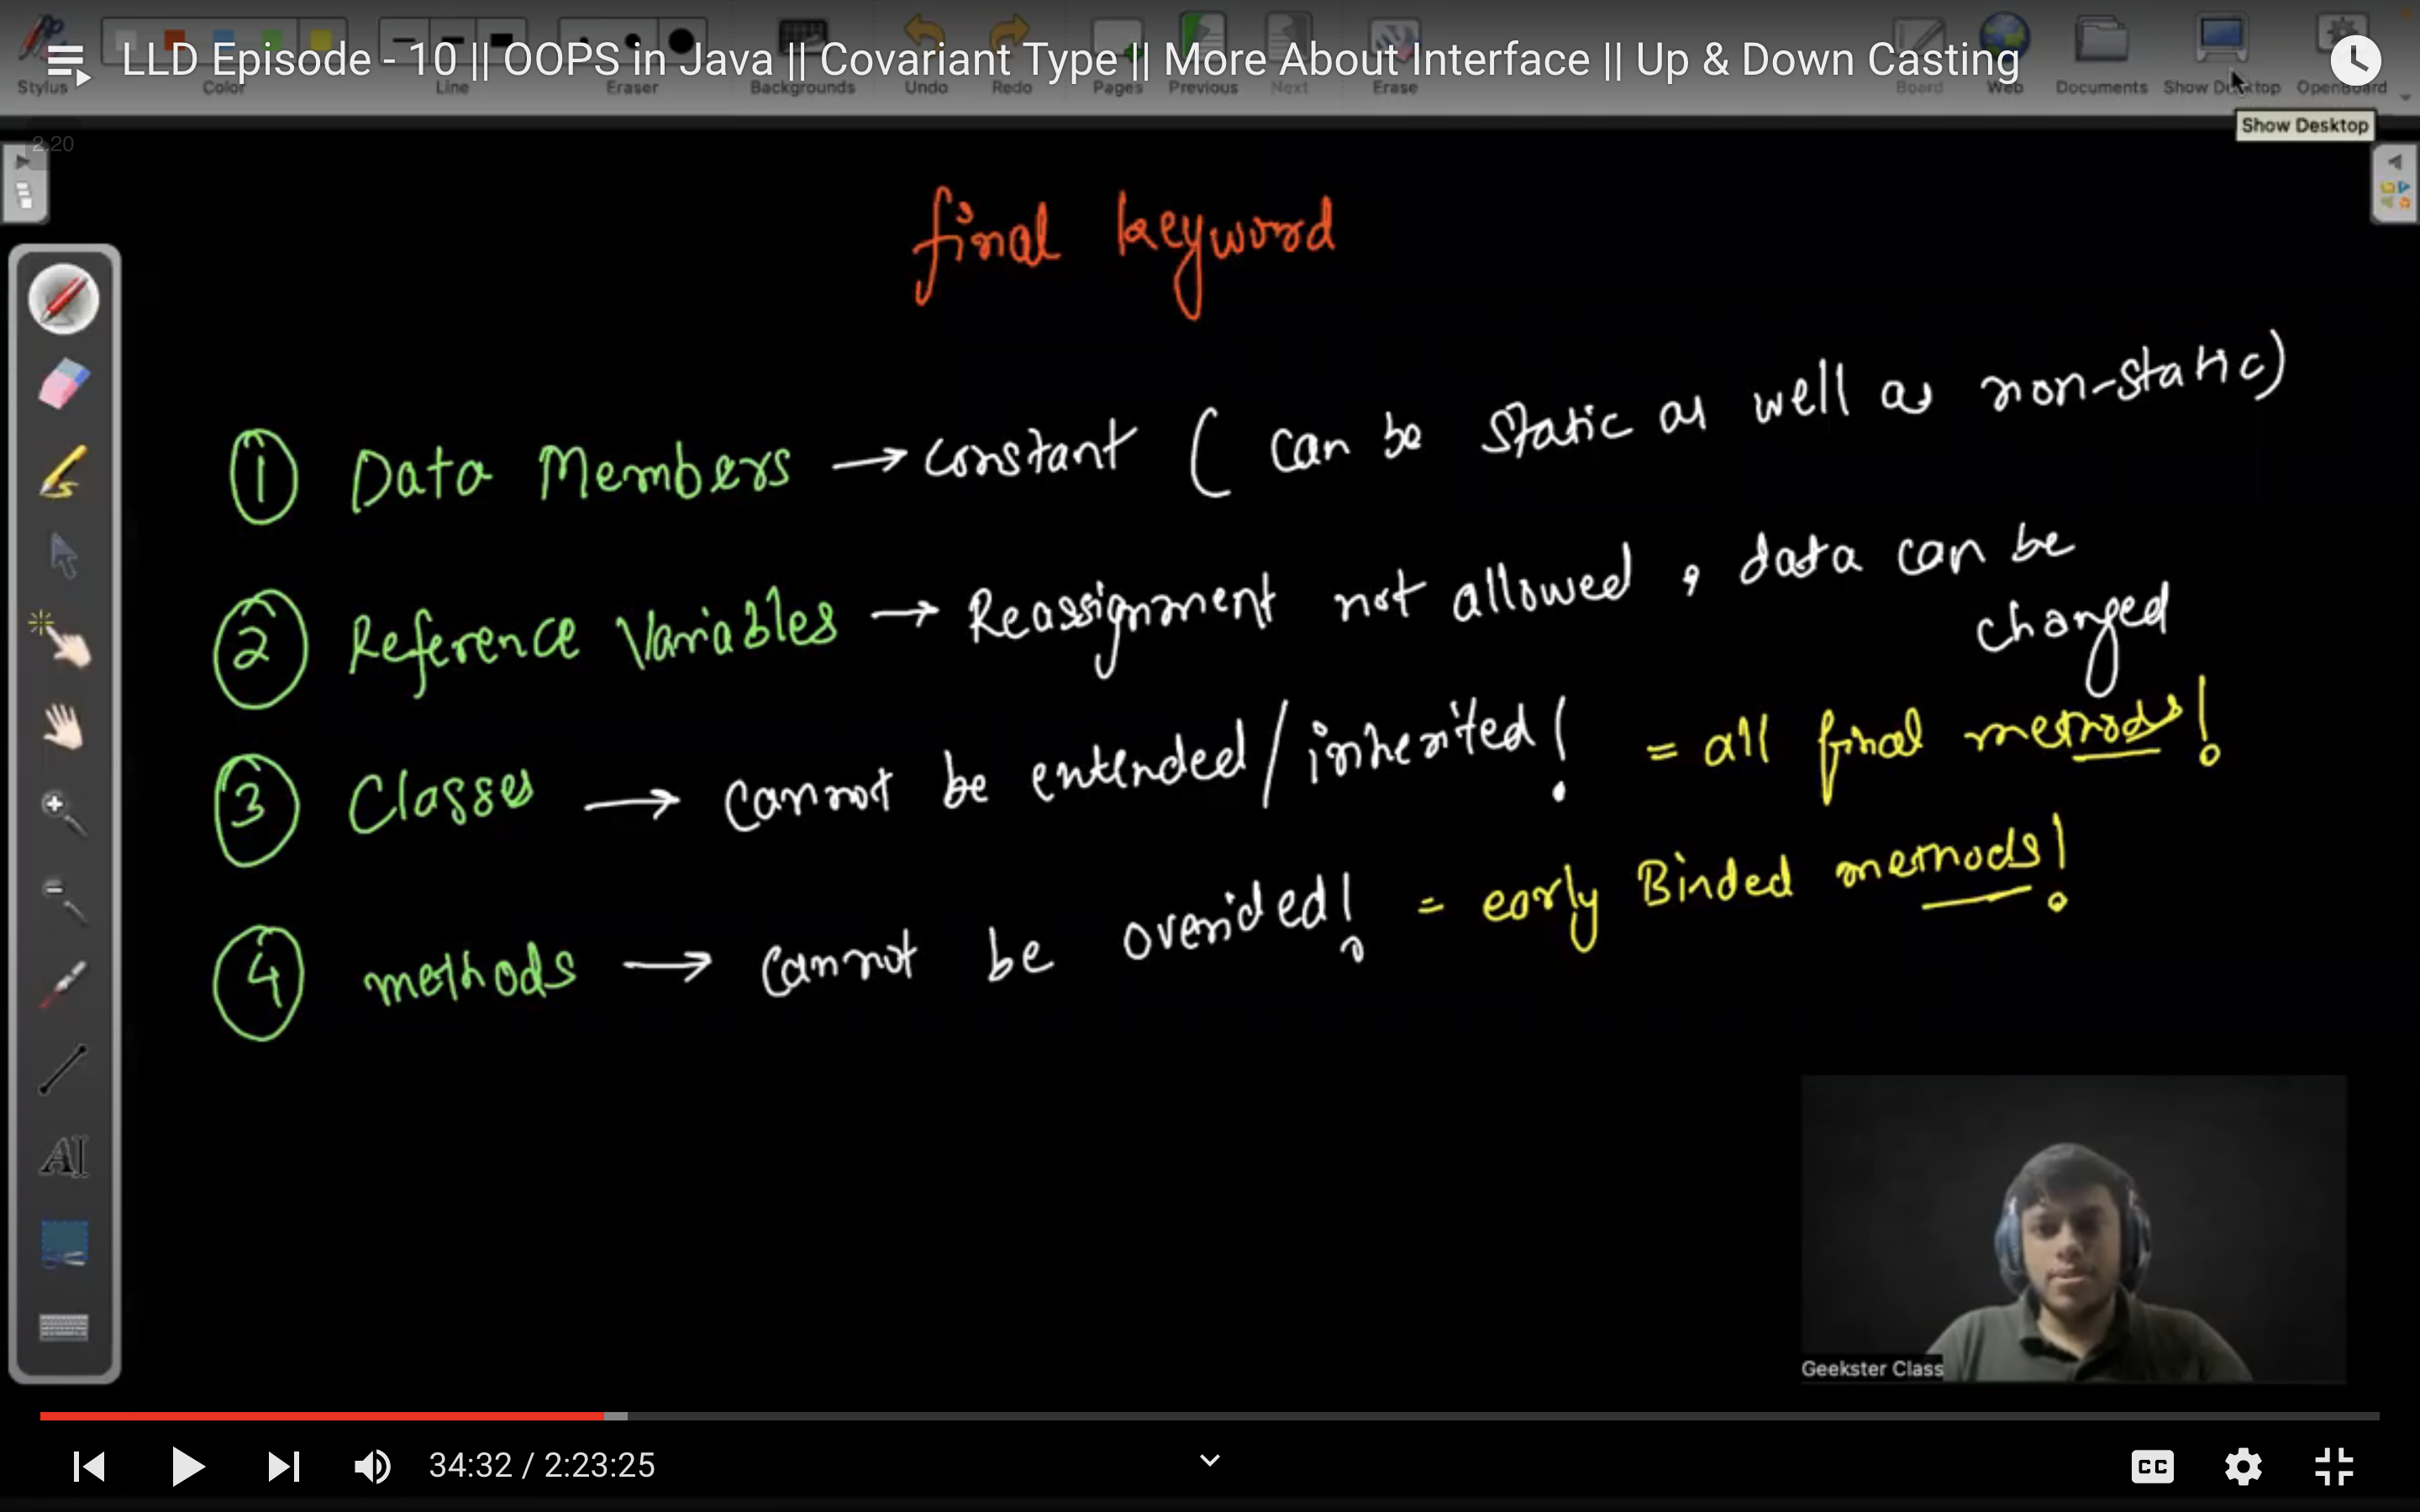 LLD Episode - 10 || OOPS in Java || Covariant Type || More About Interface || Up & Down Casting
Stylus Color Line Eraser Backgrounds Undo Redo Pages Previous Next Erase Board Web Documents Show Desktop OpenBoard
Show Desktop
2.20
final keyword
1 Data Members → constant ( can be static as well as non-static)
2 Reference Variables → Reassignment not allowed , data can be
changed
3 Classes → cannot be extended/inherited! = all final methods!
4 methods → cannot be overrided! = early Binded methods!
AI
Geekster Class
34:32 / 2:23:25
CC